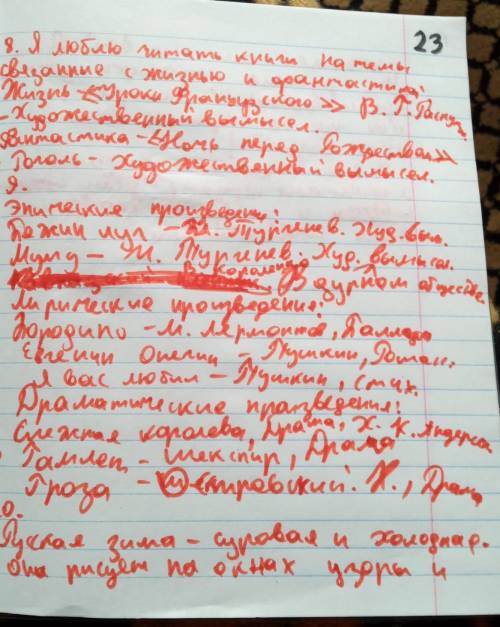 23
8. Я люблю читать книги на темы
связанные с жизнью и фантастика:
Жизнь - «Уроки Французского» В. Г. Распут.
- Художественный вымысел.
Фантастика - «Ночь перед Рождеством»
Гоголь - Художественный вымысел.
9.
Эпические произведени:
Бежин луг - Тургенев. Худ. вым.
Муму - Тургенев, Худ. вымысел.
В. Короленко В дурном обществе
Лирические произведения:
Бородино - М. Лермонтов, Баллада
Евгений Онегин - Пушкин, Роман.
Я вас любил - Пушкин, Стих.
Драматические произведения:
Снежная королева, Драма, Х. К. Андерсен
Гамлет - Шекспир, Драма
Гроза - Островский. Н., Драма
0.
Руская зима - суровая и холодная.
Она рисует на окнах узоры и